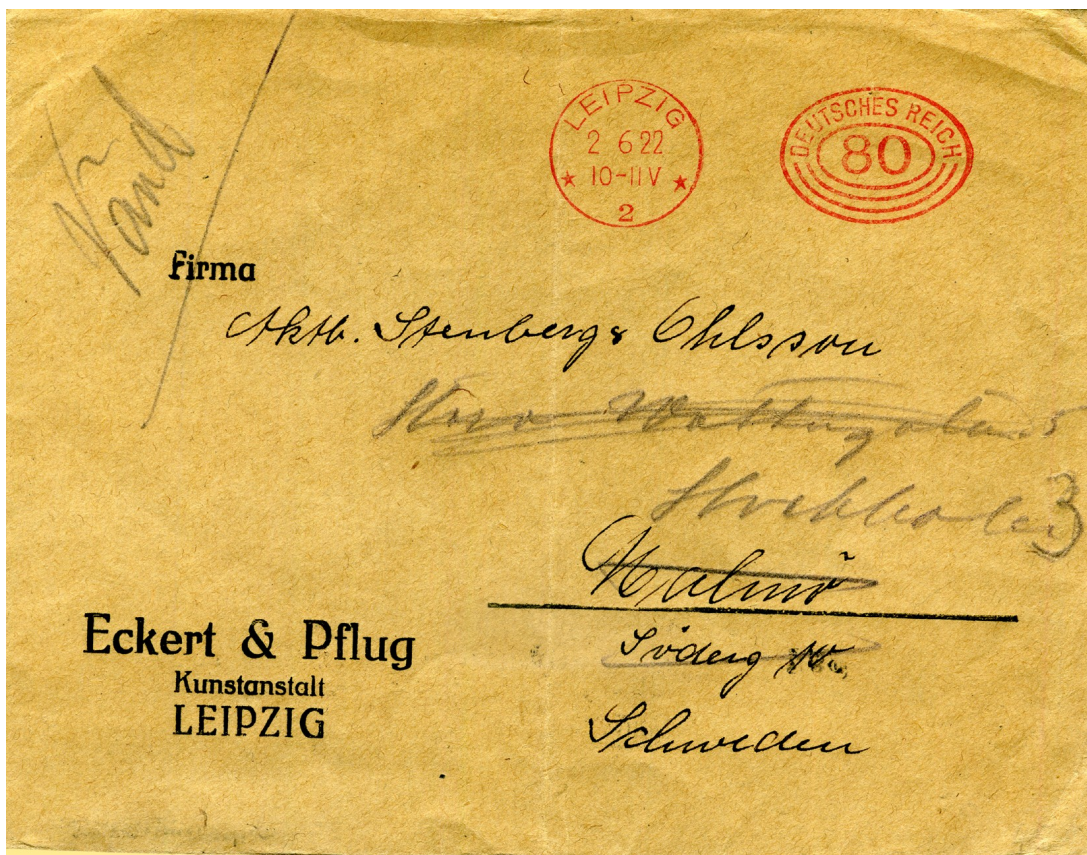 LEIPZIG
2 6 22
10-11V
2
DEUTSCHES REICH
80
Vänd
Firma
Aktb. Stenberg & Ohlsson
Stockholm 3
Malmö
Söderg
Schweden
Eckert & Pflug
Kunstanstalt
LEIPZIG